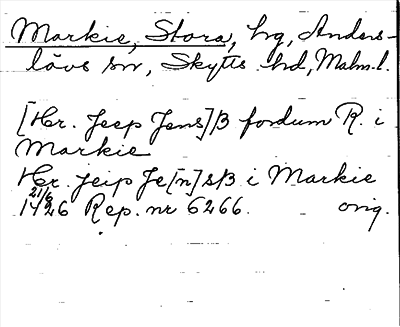 Markie, Stora, hg, Anders-
lövs sn, Skytts hd, Malm.l.
[Hr. Jeep Jens]ß fordum R. i
Markie
Hr. Jeip Je[n]sß i Markie
21/6
1426 Rep. nr 6266. orig.